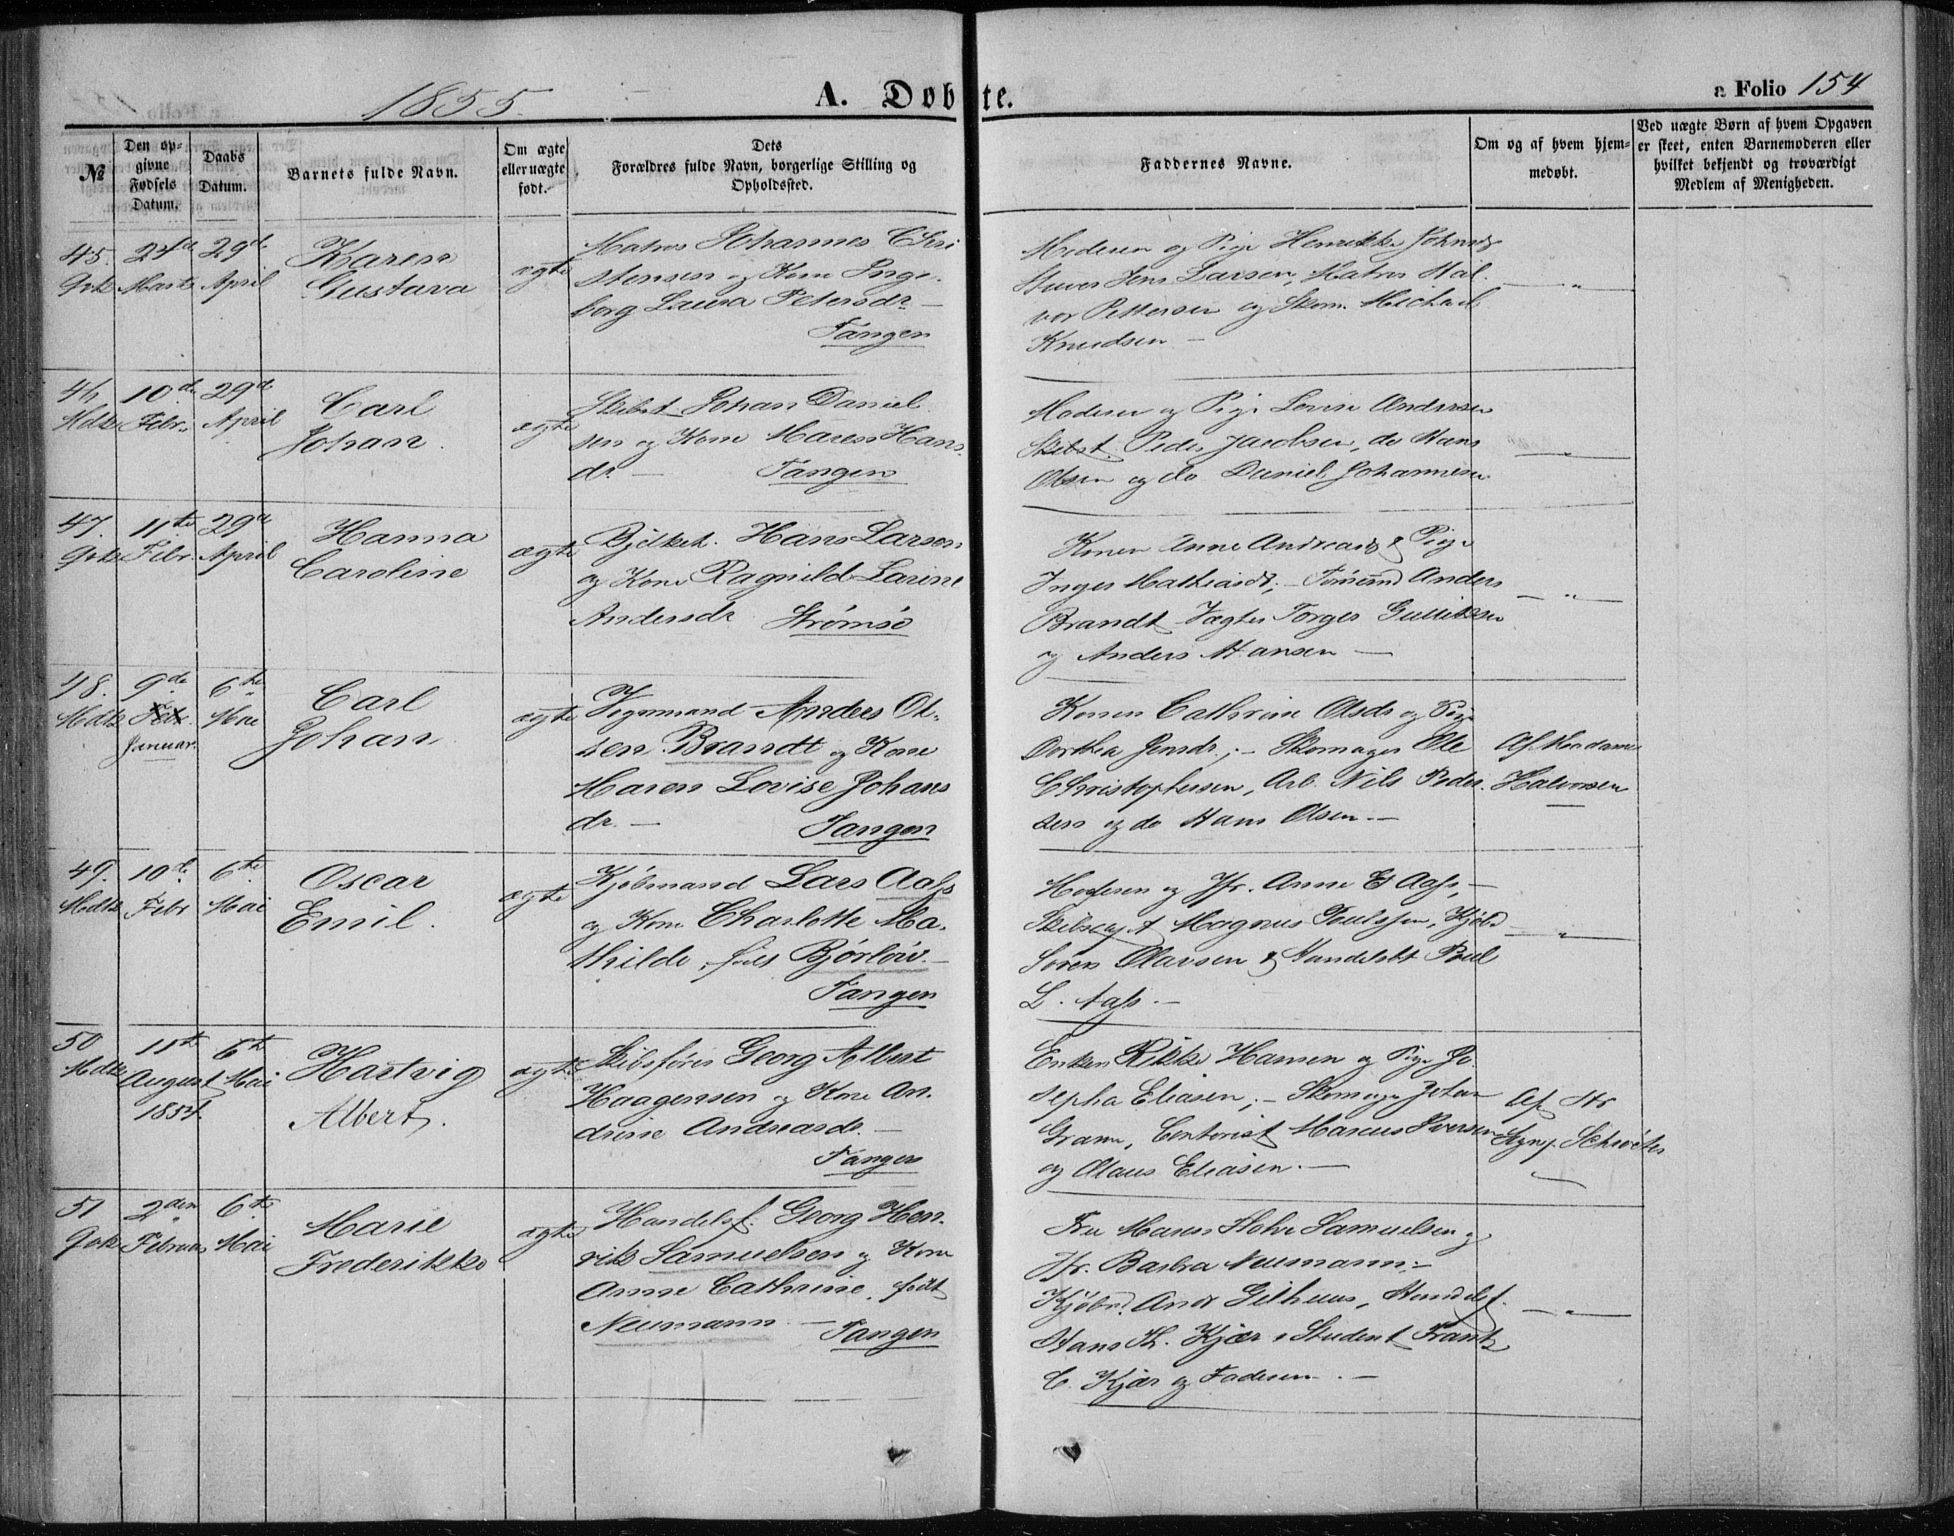 1855.
A. Døbte.
a Folio 154
№
Den opgivne Fødsels Datum.
Daabs Datum.
Barnets fulde Navn.
Om ægte eller uægte født.
Dets Forældres fulde Navn, borgerlige Stilling og Opholdssted.
Faddernes Navne.
Om og af hvem hjemmedøbt.
Ved uægte Børn af hvem Opgaven er skeet, enten Barnemoderen eller hvilket bekjendt og troværdigt Medlem af Menigheden.
45.
April
29de
Karen
Gustava
ægte
Matros Johannes Chri
stensen og Kone Inge-
borg Laura Petersdr –
Tangen
Moderen og Pige Henrikke Johnsdr
Stuver Jens Larsen, Matros Hal-
vor Pettersen og Skom. Michael
Knudsen –
46
10de Febr.
29de April
Carl
Johan.
ægte
Skibst. Johan Daniel
sen og Kone Maren Hans
dr. – Tangen
Moderen og Pige Lovise Andersen
Skibst. Peder Jacobsen, do Hans
Olsen og do Daniel Johannesen
47.
11te Febr.
29de April
Hanna
Caroline
ægte
Hans Larsen
og Kone Ragnild Larine
Andersdr. Strømsø
Konen Anne Andreasdr & Pige
Inger Mathiasdr; – Tømmd Anders
Brandt Vægter Torger Gulliksen
og Anders Hansen –
48.
9de
Febr.
Januar.
6te Mai
Carl
Johan
ægte
Vognmand Anders Ol-
sen Brandt og Kone
Maren Lovise Johans
dr. – Tangen
Konen Cathrine Olsdr og Pige
Dorthea Jensdr; – Skomager Ole
Christophersen, Arb. Nils Peder-
sen og do Hans Olsen. –
Af
Halvorsen
49.
10de Febr
6te Mai
Oscar
Emil.
ægte
Kjøbmand Lars Aass
og Kone Charlotte Ma-
thilde, født Bjørløw. –
Tangen
Moderen og Jfr. Anne E Aass, –
Magnus Poulssen, Kjøbd
Søren Olavsen & Handelsbt Poul
L. Aass. –
50
11te
August
1854.
6te Mai
Hartvig
Albert.
ægte
Skibsfører Georg Albert
Haagensen og Kone An-
drine Andreasdr. –
Tangen
Enken Rikke Hansen og Pige Jo-
sepha Eliasen; – Skomager Johan
Gram, Contorist Marcus Iversen
og Olaus Eliasen. –
Af Hr
Schrøter
51
2den Februar
6te Mai
Marie
Frederikke
ægte
Handelsf. Georg Hen-
rik Samuelsen og Kone
Anne Cathrine, født
Neumann. – Tangen
Fru Maren Samuelsen og
Jfr. Barbra Neumann; –
Kjøbmd. Andr Gilhuus, Handelsf.
Hans Th. Kjær, Student Frantz
C. Kjær og Faderen. –